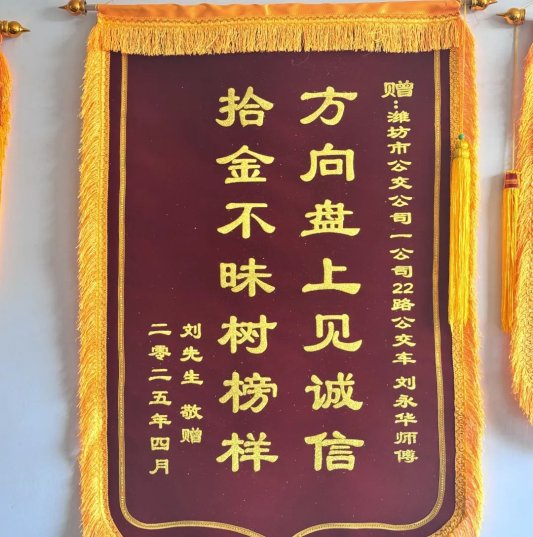 赠:潍坊市公交公司一公司22路公交车 刘永华师傅
方向盘上见诚信
拾金不昧树榜样
刘先生 敬赠
二零二五年四月